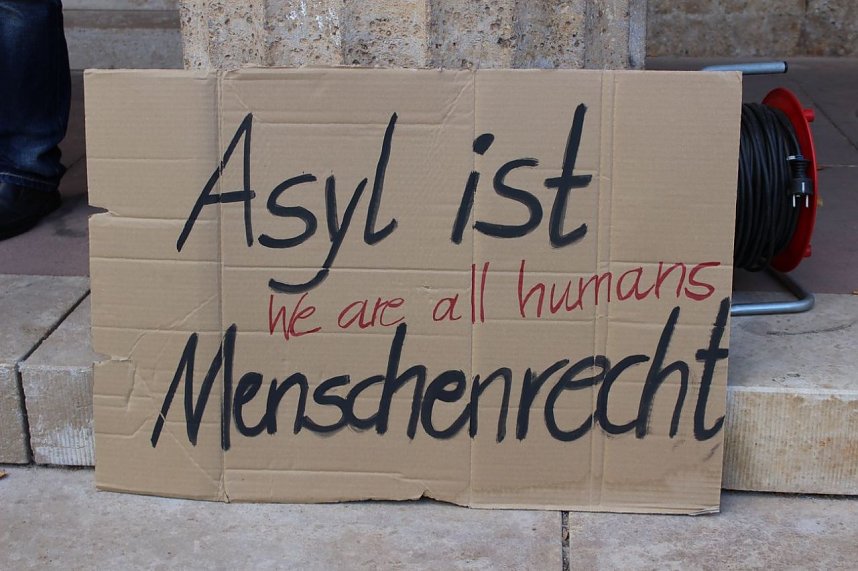 Asyl ist
We are all humans
Menschenrecht